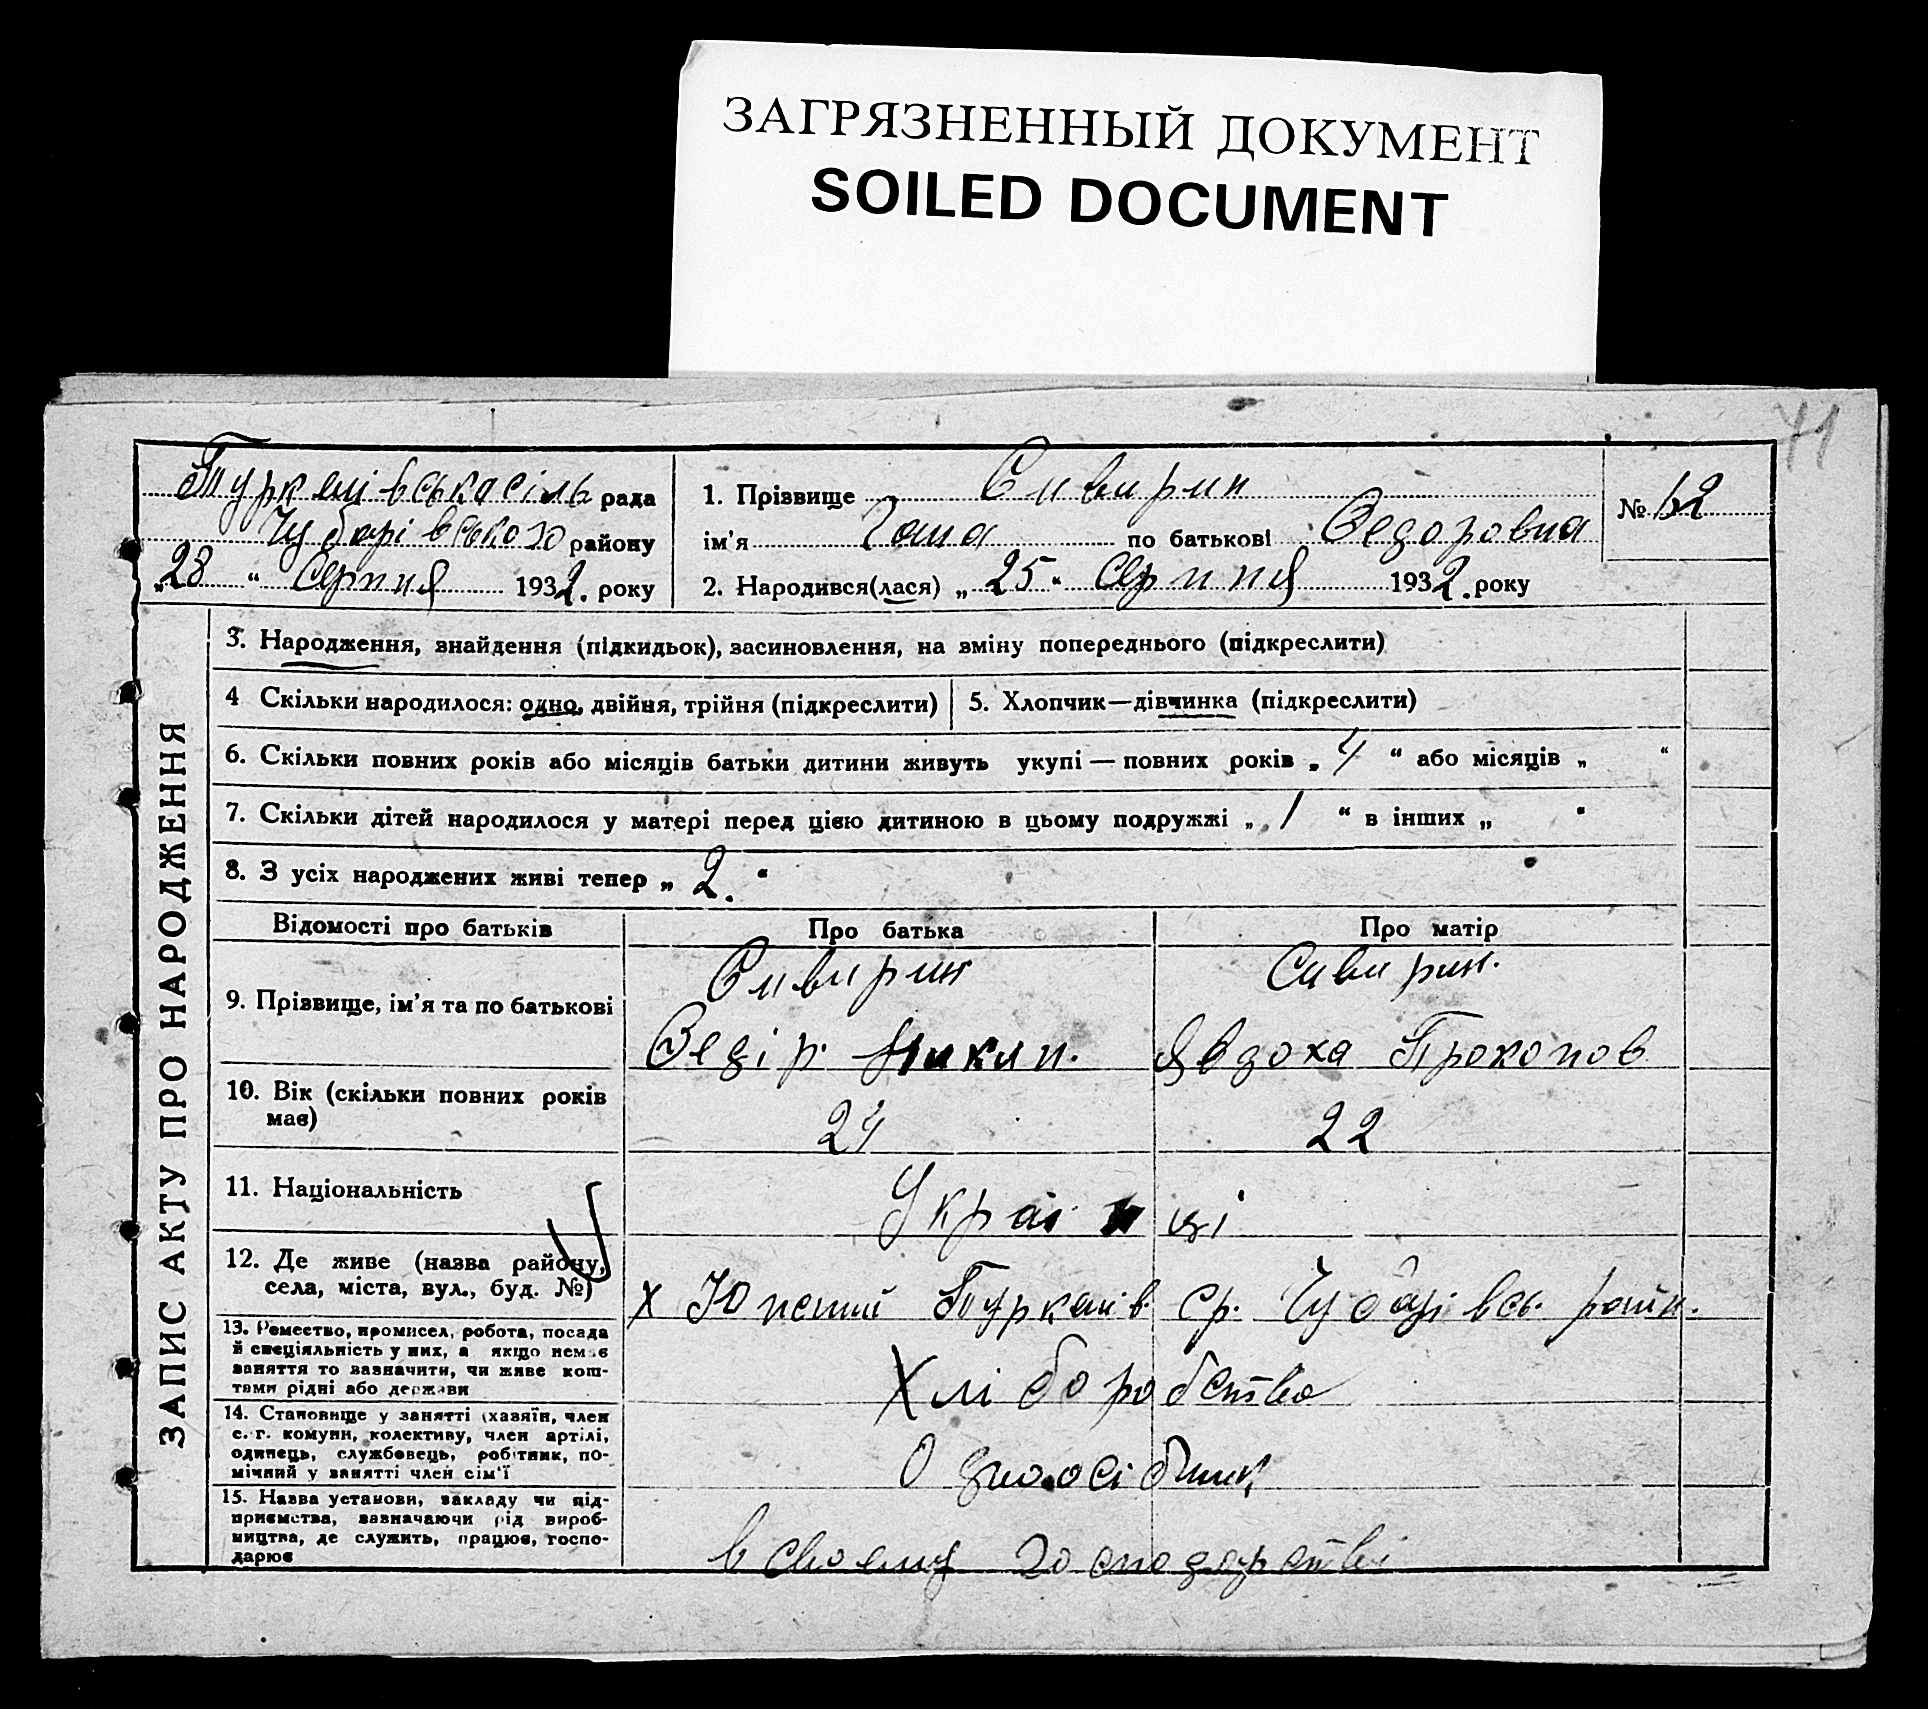 ЗАГРЯЗНЕННЫЙ ДОКУМЕНТ
SOILED DOCUMENT
41
Туркенівська сіль рада
Чубарівського району
„28“ Серпня 1932. року
1. Прізвище Сивирин
ім'я Ганна по батькові Федоровна
2. Народився(лася) „25“ Серпня 1932. року
№ 62
ЗАПИС АКТУ ПРО НАРОДЖЕННЯ
3. Народження, знайдення (підкидьок), засиновлення, на зміну попереднього (підкреслити)
4 Скільки народилося: одно, двійня, трійня (підкреслити)
5. Хлопчик—дівчинка (підкреслити)
6. Скільки повних років або місяців батьки дитини живуть укупі — повних років „ 4 “ або місяців „ “
7. Скільки дітей народилося у матері перед цією дитиною в цьому подружжі „ 1 “ в інших „ “
8. З усіх народжених живі тепер „ 2. “
Відомості про батьків Про батька Про матір
9. Прізвище, ім'я та по батькові
Сивирин Сивирин.
Федір. Явдоха Прокопов
10. Вік (скільки повних років має)
24 22
11. Національність
Українці
12. Де живе (назва району, села, міста, вул., буд. №)
х Туркенів. ср. Чубарівсь. райн.
13. Ремество, промисел, робота, посада
й спеціяльність у них, а якщо немає
заняття то зазначити, чи живе кош-
тами рідні або держави
Хліборобство
14. Становище у занятті (хазяїн, член
с.-г. комуни, колективу, член артілі,
одинець, службовець, робітник, по-
мічний у занятті член сім'ї
Одноосібник
15. Назва установи, закладу чи під-
приємства, зазначаючи рід вироб-
ництва, де служить, працює, госпо-
дарює
в своєму господарстві